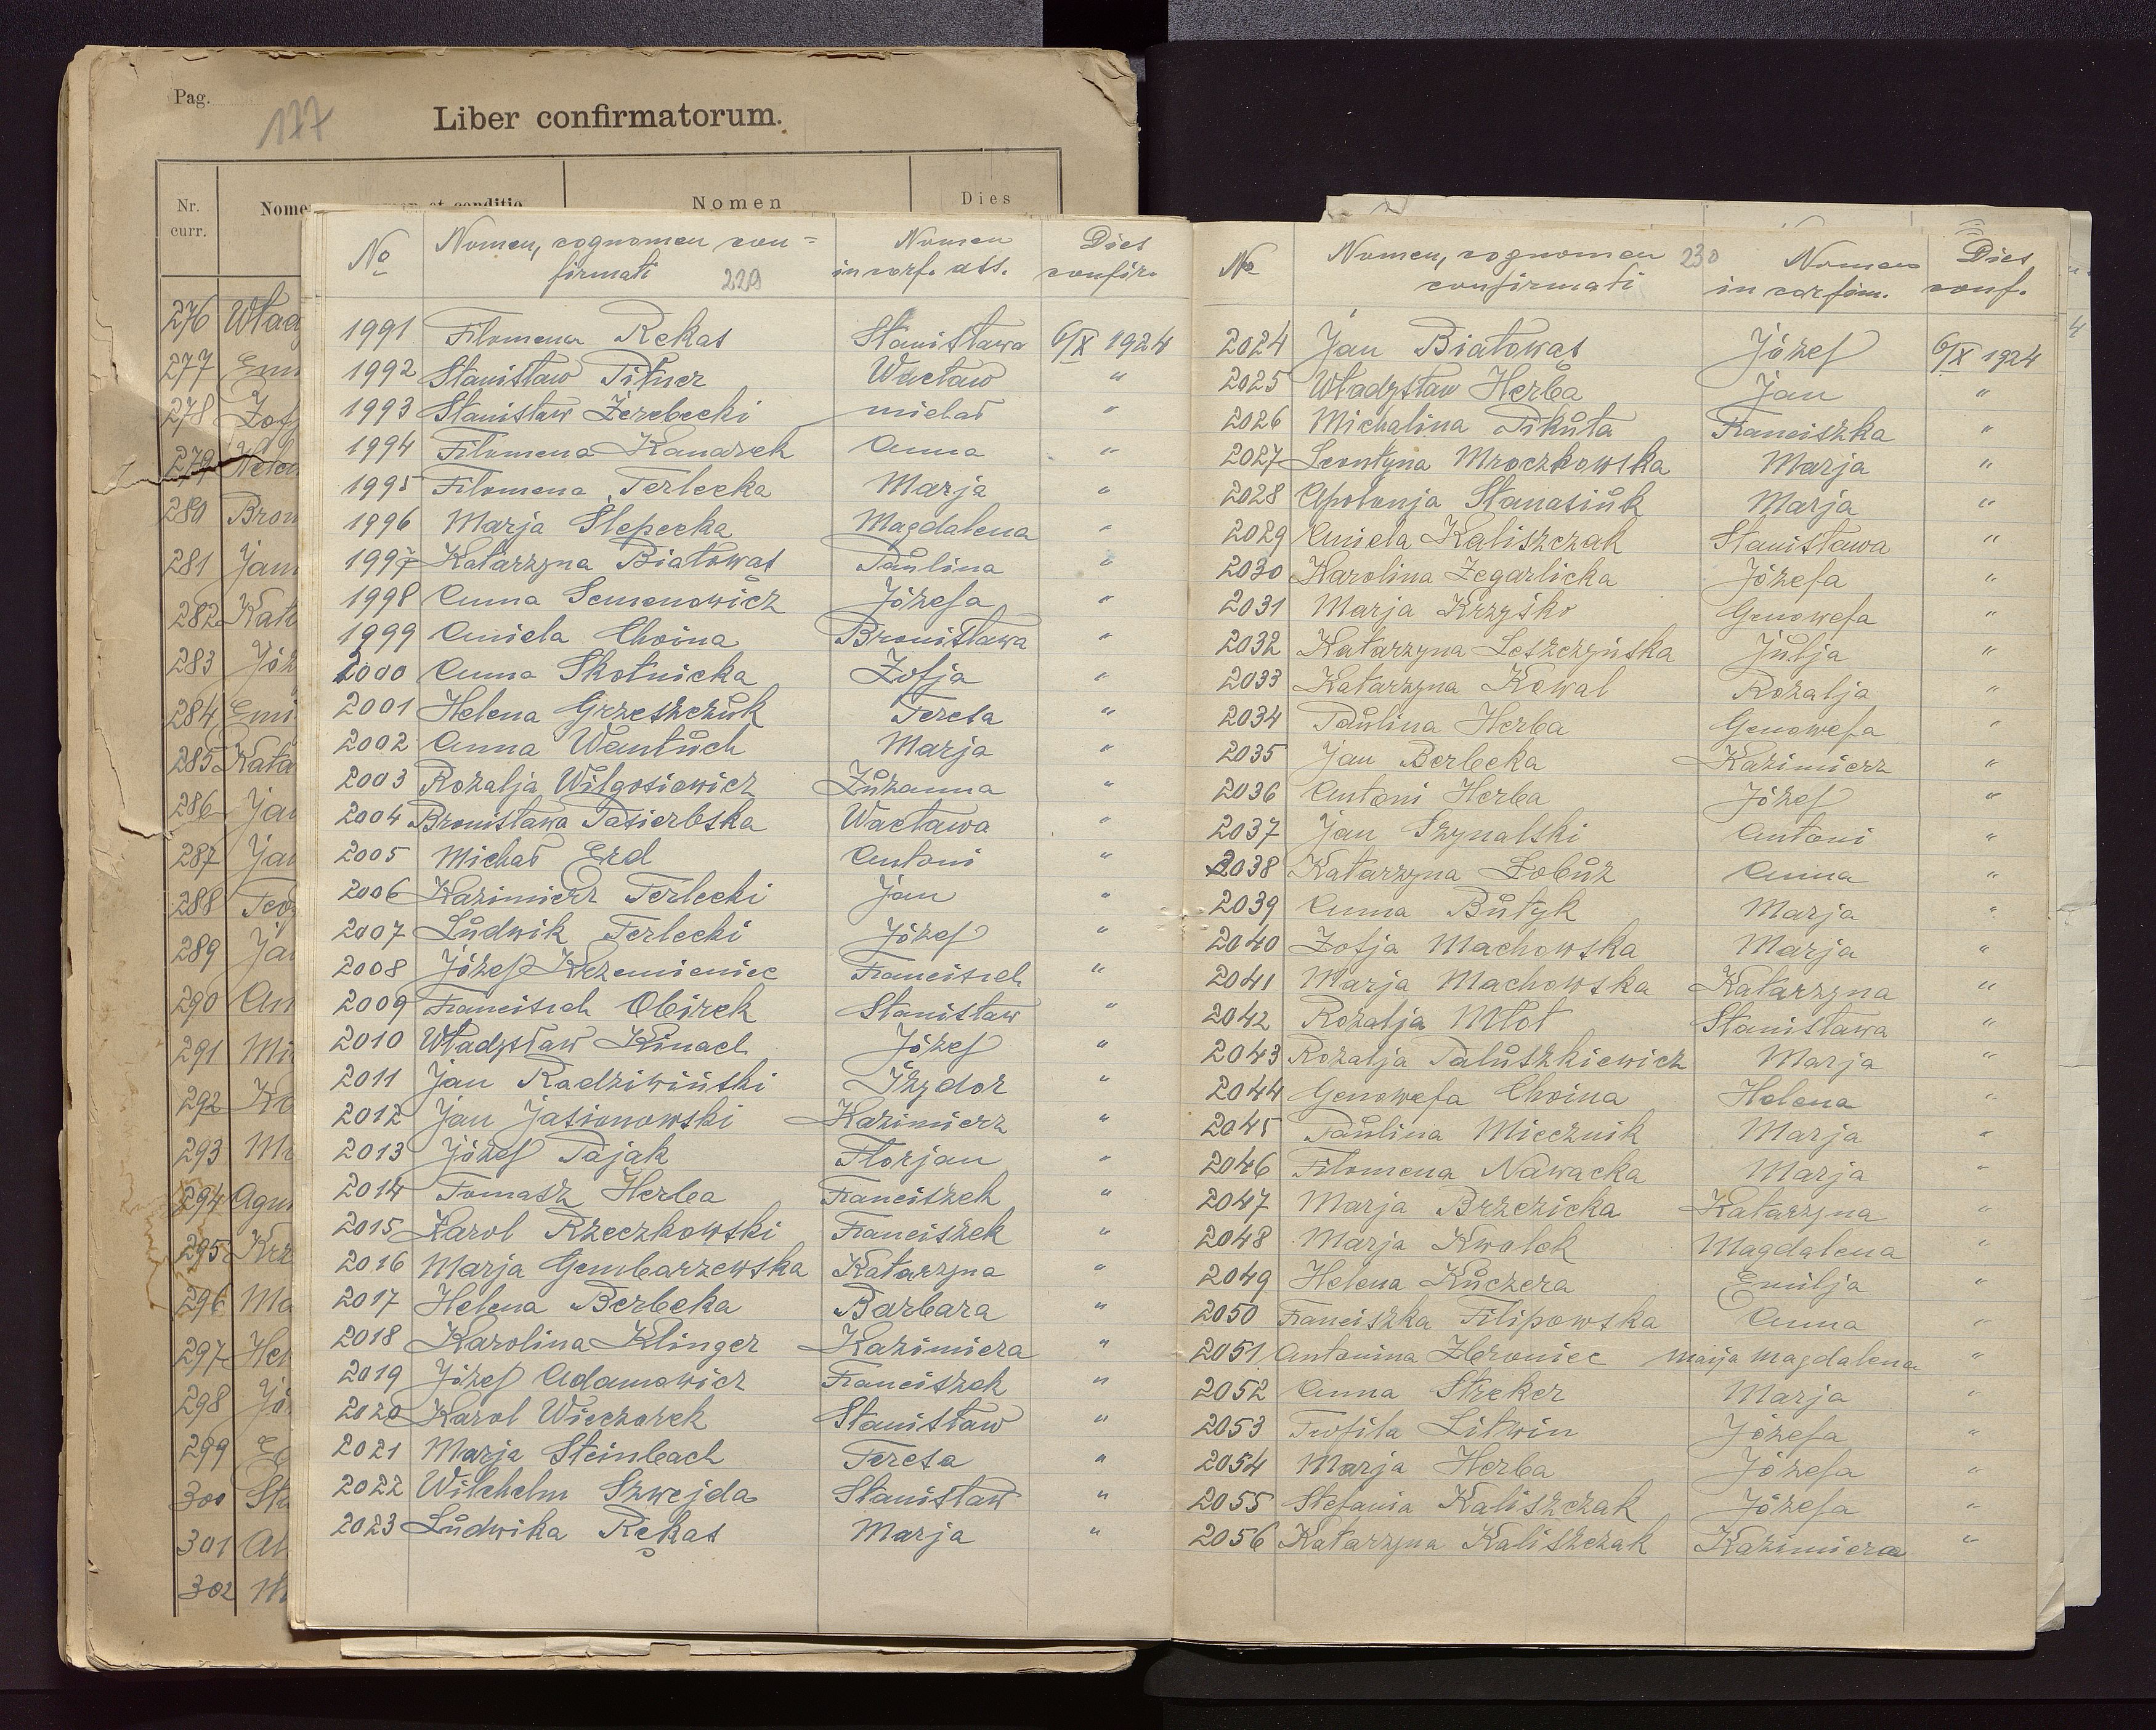 Pag.
177
Liber confirmatorum.
Nr. curr.
Nomen
Dies
276 Wład
277
278 Zofj
279
280 Bron
281 Jan
282 Kat
283 Józ
284 Emi
285 Kata
286 Jan
287 Jan
288
289 Jan
290 An
291 Mi
292
293
294
295
296 Ma
297 Hel
298 Jó
299
300 Sta
301
302
№ Nomen, cognomen con= Nomen Dies
firmati 229 in conf. ass. confir.
1991 Filomena Rekas Stanisława 6/IX 1924
1992 Stanisław Pitner Wacław "
1993 Stanisław Żerebecki Michał "
1994 Filomena Kanarek Anna "
1995 Filomena Terlecka Marja "
1996 Marja Slepecka Magdalena "
1997 Katarzyna Białowąs Paulina "
1998 Anna Semenowicz Józefa "
1999 Aniela Choina Bronisława "
2000 Anna Skotnicka Zofja "
2001 Helena Grzeszczuk Teresa "
2002 Anna Wantuch Marja "
2003 Rozalja Wilgosiewicz Zuzanna "
2004 Bronisława Pasierbska Wacława "
2005 Michał Erd Antoni "
2006 Kazimierz Terlecki Jan "
2007 Ludwik Terlecki Józef "
2008 Józef Krzemieniec Francisich "
2009 Francisich Obirek Stanisław "
2010 Władysław Kinach Józef "
2011 Jan Radziwiński Izydor "
2012 Jan Jasionowski Kazimierz "
2013 Józef Pająk Florjan "
2014 Tomasz Herba Franciszek "
2015 Karol Rzeczkowski Franciszek "
2016 Marja Gembarzewska Katarzyna "
2017 Helena Berbeka Barbara "
2018 Karolina Klinger Kazimiera "
2019 Józef Adamowicz Franciszek "
2020 Karol Wieczorek Stanisław "
2021 Marja Steinbach Teresa "
2022 Wilchelm Szwejda Stanisław "
2023 Ludwika Rekas Marja "
№ Nomen, cognomen 230 Nomen Dies
confirmati in confirm. conf.
2024 Jan Białowąs Józef 6/IX 1924
2025 Władysław Herba Jan "
2026 Michalina Pikuła Franciszka "
2027 Leontyna Mroczkowska Marja "
2028 Apolonja Stanasiuk Marja "
2029 Aniela Kaliszczak Stanisława "
2030 Karolina Zegarlicka Józefa "
2031 Marja Krzyśko Genowefa "
2032 Katarzyna Leszczyńska Julja "
2033 Katarzyna Kowal Rozalja "
2034 Paulina Herba Genowefa "
2035 Jan Berbeka Kazimierz "
2036 Antoni Herba Józef "
2037 Jan Szynalski Antoni "
2038 Katarzyna Łobuz Anna "
2039 Anna Butyk Marja "
2040 Zofja Machowska Marja "
2041 Marja Machowska Katarzyna "
2042 Rozalja Młot Stanisława "
2043 Rozalja Paluszkiewicz Marja "
2044 Genowefa Choina Helena "
2045 Paulina Miecznik Marja "
2046 Filomena Nawacka Marja "
2047 Marja Brzezicka Katarzyna "
2048 Marja Kwolek Magdalena "
2049 Helena Kuczera Emilja "
2050 Franciszka Filipowska Anna "
2051 Antonina Zbroniec Marja Magdalena "
2052 Anna Streker Marja "
2053 Teofila Litwin Józefa "
2054 Marja Herba Józefa "
2055 Stefania Kaliszczak Józefa "
2056 Katarzyna Kaliszczak Kazimiera "